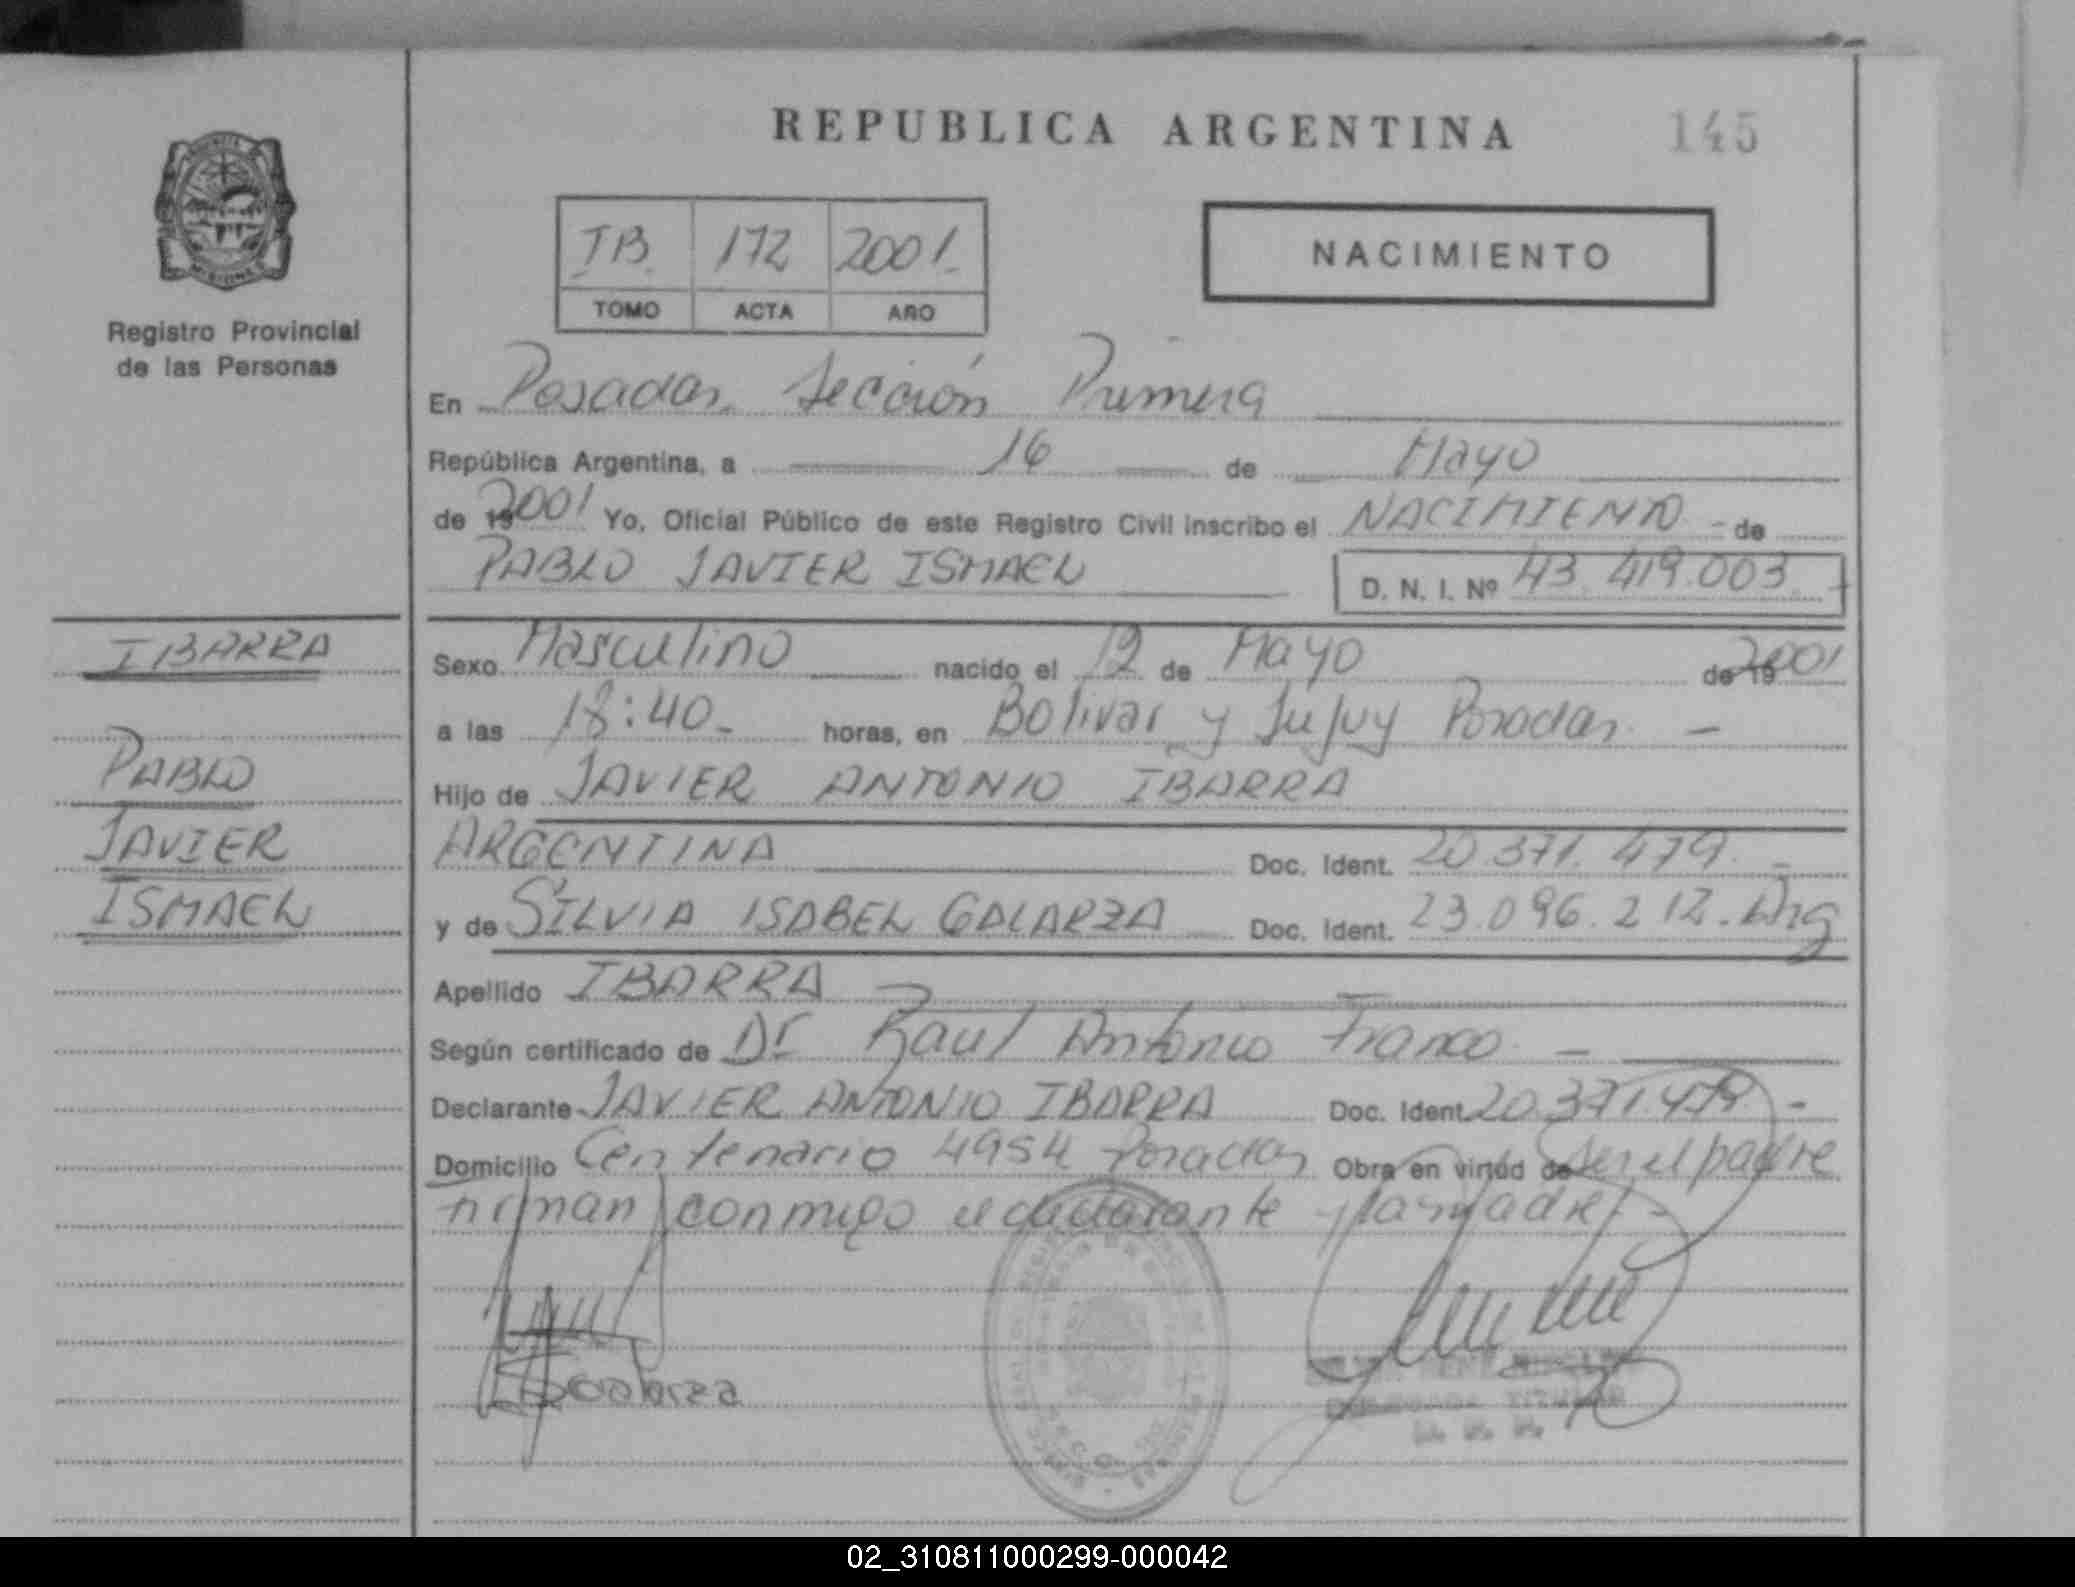 REPUBLICA ARGENTINA
145
Registro Provincial
de las Personas
IB. 172 2001.
TOMO ACTA AÑO
NACIMIENTO
En Posadas Sección Primera
República Argentina, a 16 de Mayo
de 2001 Yo, Oficial Público de este Registro Civil inscribo el NACIMIENTO - de
PABLO JAVIER ISMAEL D. N. I. Nº 43.419.003.-
IBARRA
PABLO
JAVIER
ISMAEL
Sexo Masculino nacido el 12 de Mayo de 2001
a las 18:40- horas, en Bolivar y Jujuy Posadas. -
Hijo de JAVIER ANTONIO IBARRA
ARGENTINA Doc. Ident. 20.371.479.-
y de SILVIA ISABEL GALARZA Doc. Ident. 23.096.212. Arg
Apellido IBARRA
Según certificado de Dr Raul Antonio Franco -
Declarante JAVIER ANTONIO IBARRA Doc. Ident. 20.371.479. -
Domicilio Centenario 4954 Posadas Obra en virtud de ser el padre
firman conmigo el declarante y la madre/-
Galarza
TITULAR
02_310811000299-000042